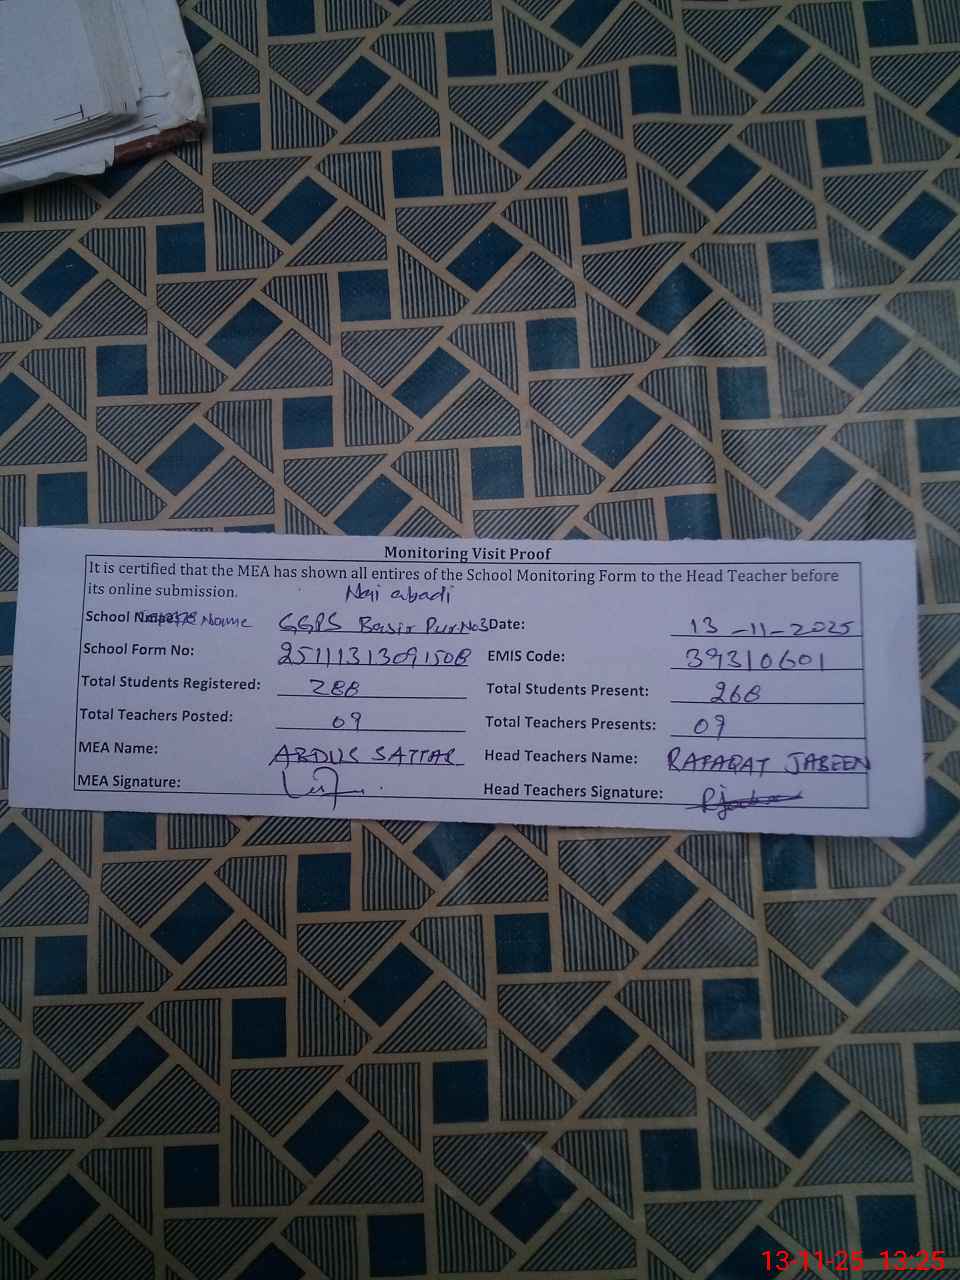 Monitoring Visit Proof
It is certified that the MEA has shown all entires of the School Monitoring Form to the Head Teacher before
its online submission.
Nai abadi
School Name GGPS Basir Pur No3 Date: 13-11-2025
School Form No: 2511131309150B EMIS Code: 39310601
Total Students Registered: 288 Total Students Present: 268
Total Teachers Posted: 09 Total Teachers Presents: 09
MEA Name: ABDUS SATTAR Head Teachers Name: RAFAQAT JABEEN
MEA Signature: Head Teachers Signature:
13-11-25 13:25